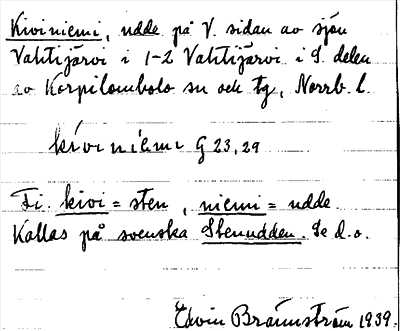 Kiviniemi, udde på V. sidan av sjön
Vahtijärvi i 1-2 Vahtijärvi i S. delen
av Korpilombolo sn och tg, Norrb. l.
kiviniemi G 23,29
Fi. kivi = sten, niemi = udde.
Kallas på svenska Stenudden. Se d.o.
Edvin Brännström 1939.